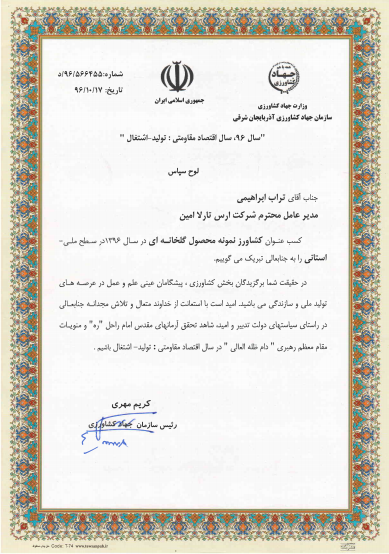 شماره: ۹۶/۵۶۶۴۵۵/د
تاریخ: ۹۶/۱۰/۱۷
جمهوری اسلامی ایران
جهاد
کشاورزی
وزارت جهاد کشاورزی
سازمان جهاد کشاورزی آذربایجان شرقی
"سال ۹۶، سال اقتصاد مقاومتی : تولید-اشتغال "
لوح سپاس
جناب آقای تراب ابراهیمی
مدیر عامل محترم شرکت ارس تارلا امین
کسب عنوان کشاورز نمونه محصول گلخانه ای در سال ۱۳۹۶در سطح ملی-
استانی را به جنابعالی تبریک می گوییم.
در حقیقت شما برگزیدگان بخش کشاورزی ، پیشگامان عینی علم و عمل در عرصه های
تولید ملی و سازندگی می باشید. امید است با استعانت از خداوند متعال و تلاش مجدانه جنابعالی
در راستای سیاستهای دولت تدبیر و امید، شاهد تحقق آرمانهای مقدس امام راحل "ره" و منویات
مقام معظم رهبری " دام ظله العالی " در سال اقتصاد مقاومتی : تولید- اشتغال باشیم .
کریم مهری
رئیس سازمان جهاد کشاورزی
Code: T-74 www.